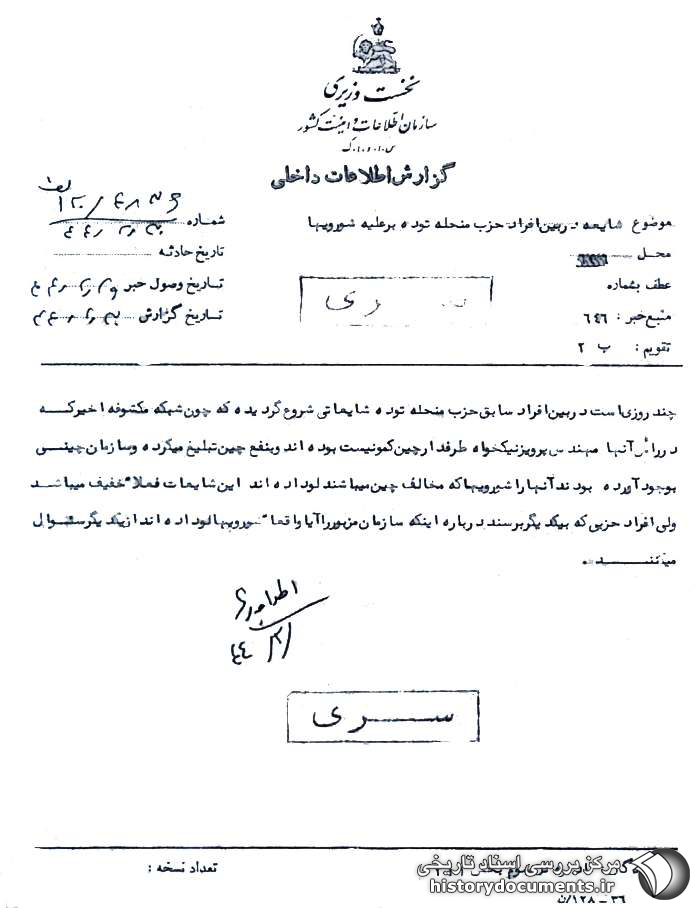 نخست وزیری
سازمان اطلاعات و امنیت کشور
س.ا.و.ا.ک
گزارش اطلاعات داخلی
موضوع شایعه در بین افراد حزب منحله توده بر علیه شورویها
شماره
محل
تاریخ حادثه
عطف بشماره
تاریخ وصول خبر
سری
منبع خبر : ٦٤٦
تاریخ گزارش
تقویم : ب ۲
چند روزی است در بین افراد سابق حزب منحله توده شایعاتی شروع گردیده که چون شبکه مکشوفه اخیر که
در راس آنها مهندس پرویز نیکخواه طرفدار چین کمونیست بوده اند و بنفع چین تبلیغ میکرده و سازمان چینی
بوجود آورده بودند آنها را شورویها که مخالف چین میباشند لو داده اند این شایعات فعلا" خفیف میباشد
ولی افراد حزبی که بیکدیگر برسند درباره اینکه سازمان مزبور را آیا واقعا" شورویها لو داده اند از یکدیگر سئوال
میکنند.
سری
تعداد نسخه :
۳٦ - ۱۲۸/ن
مرکز بررسی اسناد تاریخی
historydocuments.ir